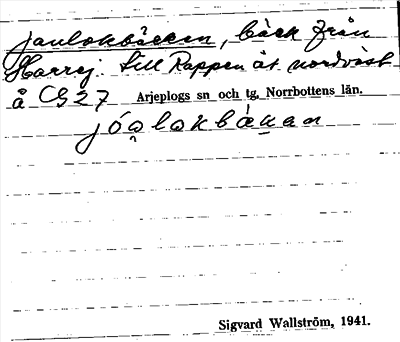 Jaulokbäcken, bäck från
Harrej. till Rappen åt nordväst
å C927 Arjeplogs sn och tg, Norrbottens län.
jóa̯lokbäkan
Sigvard Wallström, 1941.